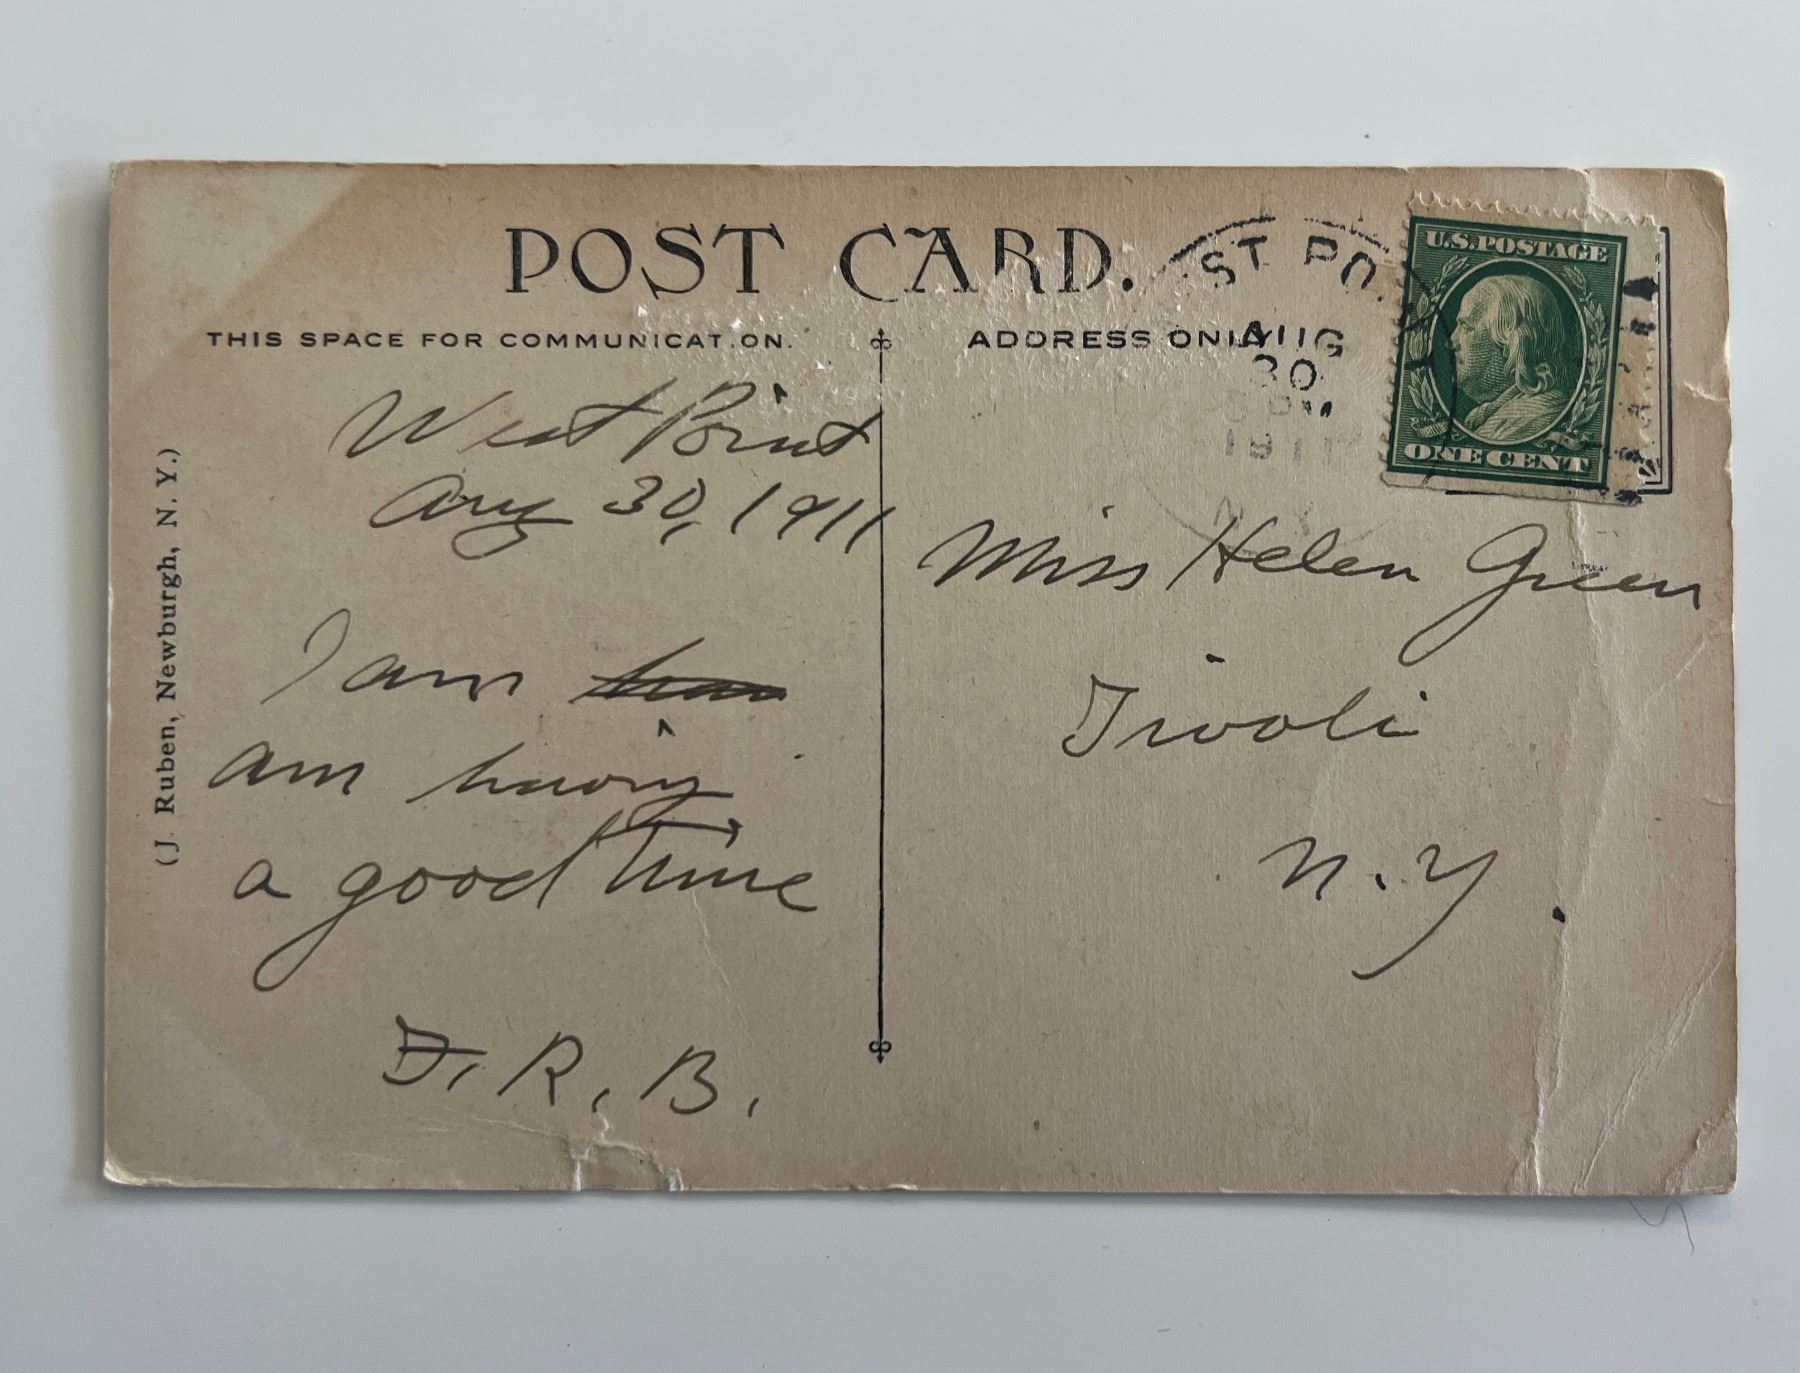 POST CARD.
THIS SPACE FOR COMMUNICATION.
ADDRESS ONLY
ST PO
AUG
30
1911
N.Y.
U.S. POSTAGE
ONE CENT
(J. Ruben, Newburgh, N. Y.)
West Point
Aug 30, 1911
I am
am having
a good time
F. R. B.
Miss Helen Green
Tivoli
N.Y.